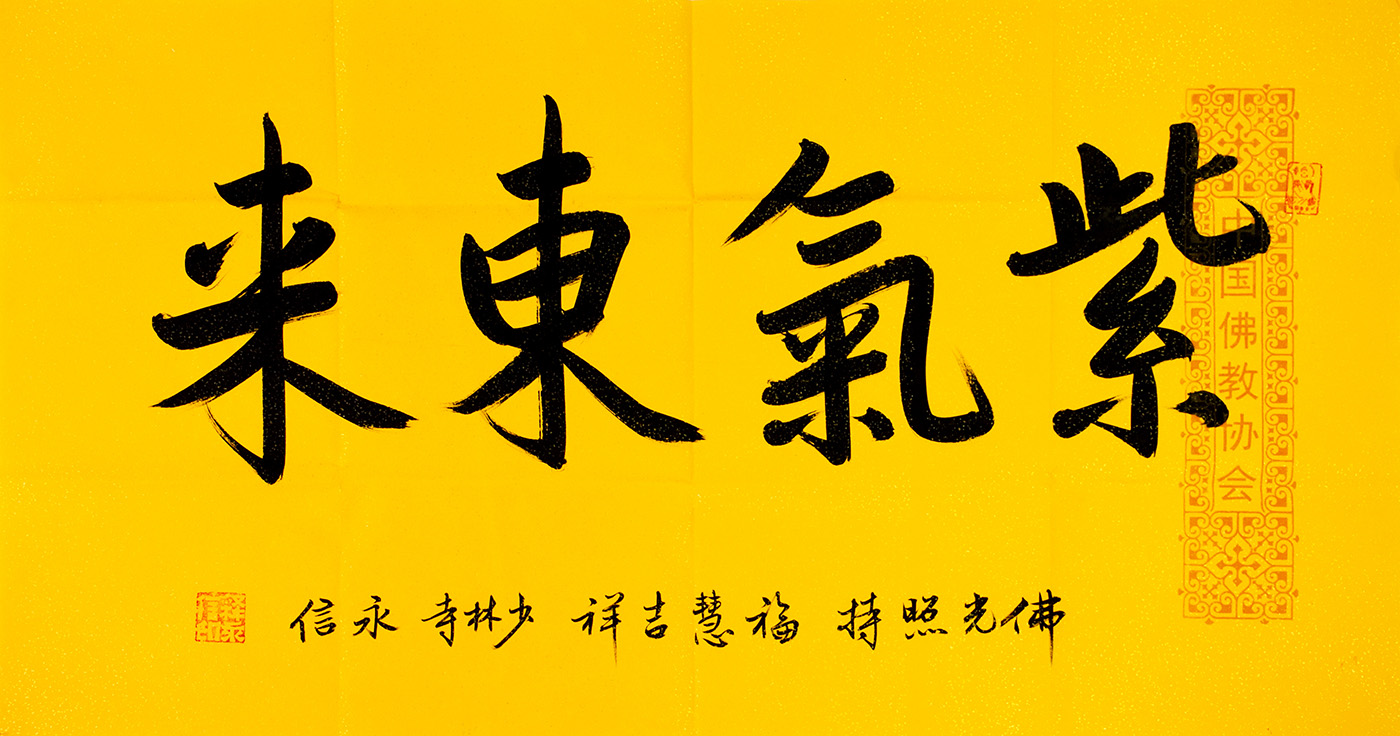 紫氣東来
中国佛教协会
佛光照持 福慧吉祥 少林寺 永信